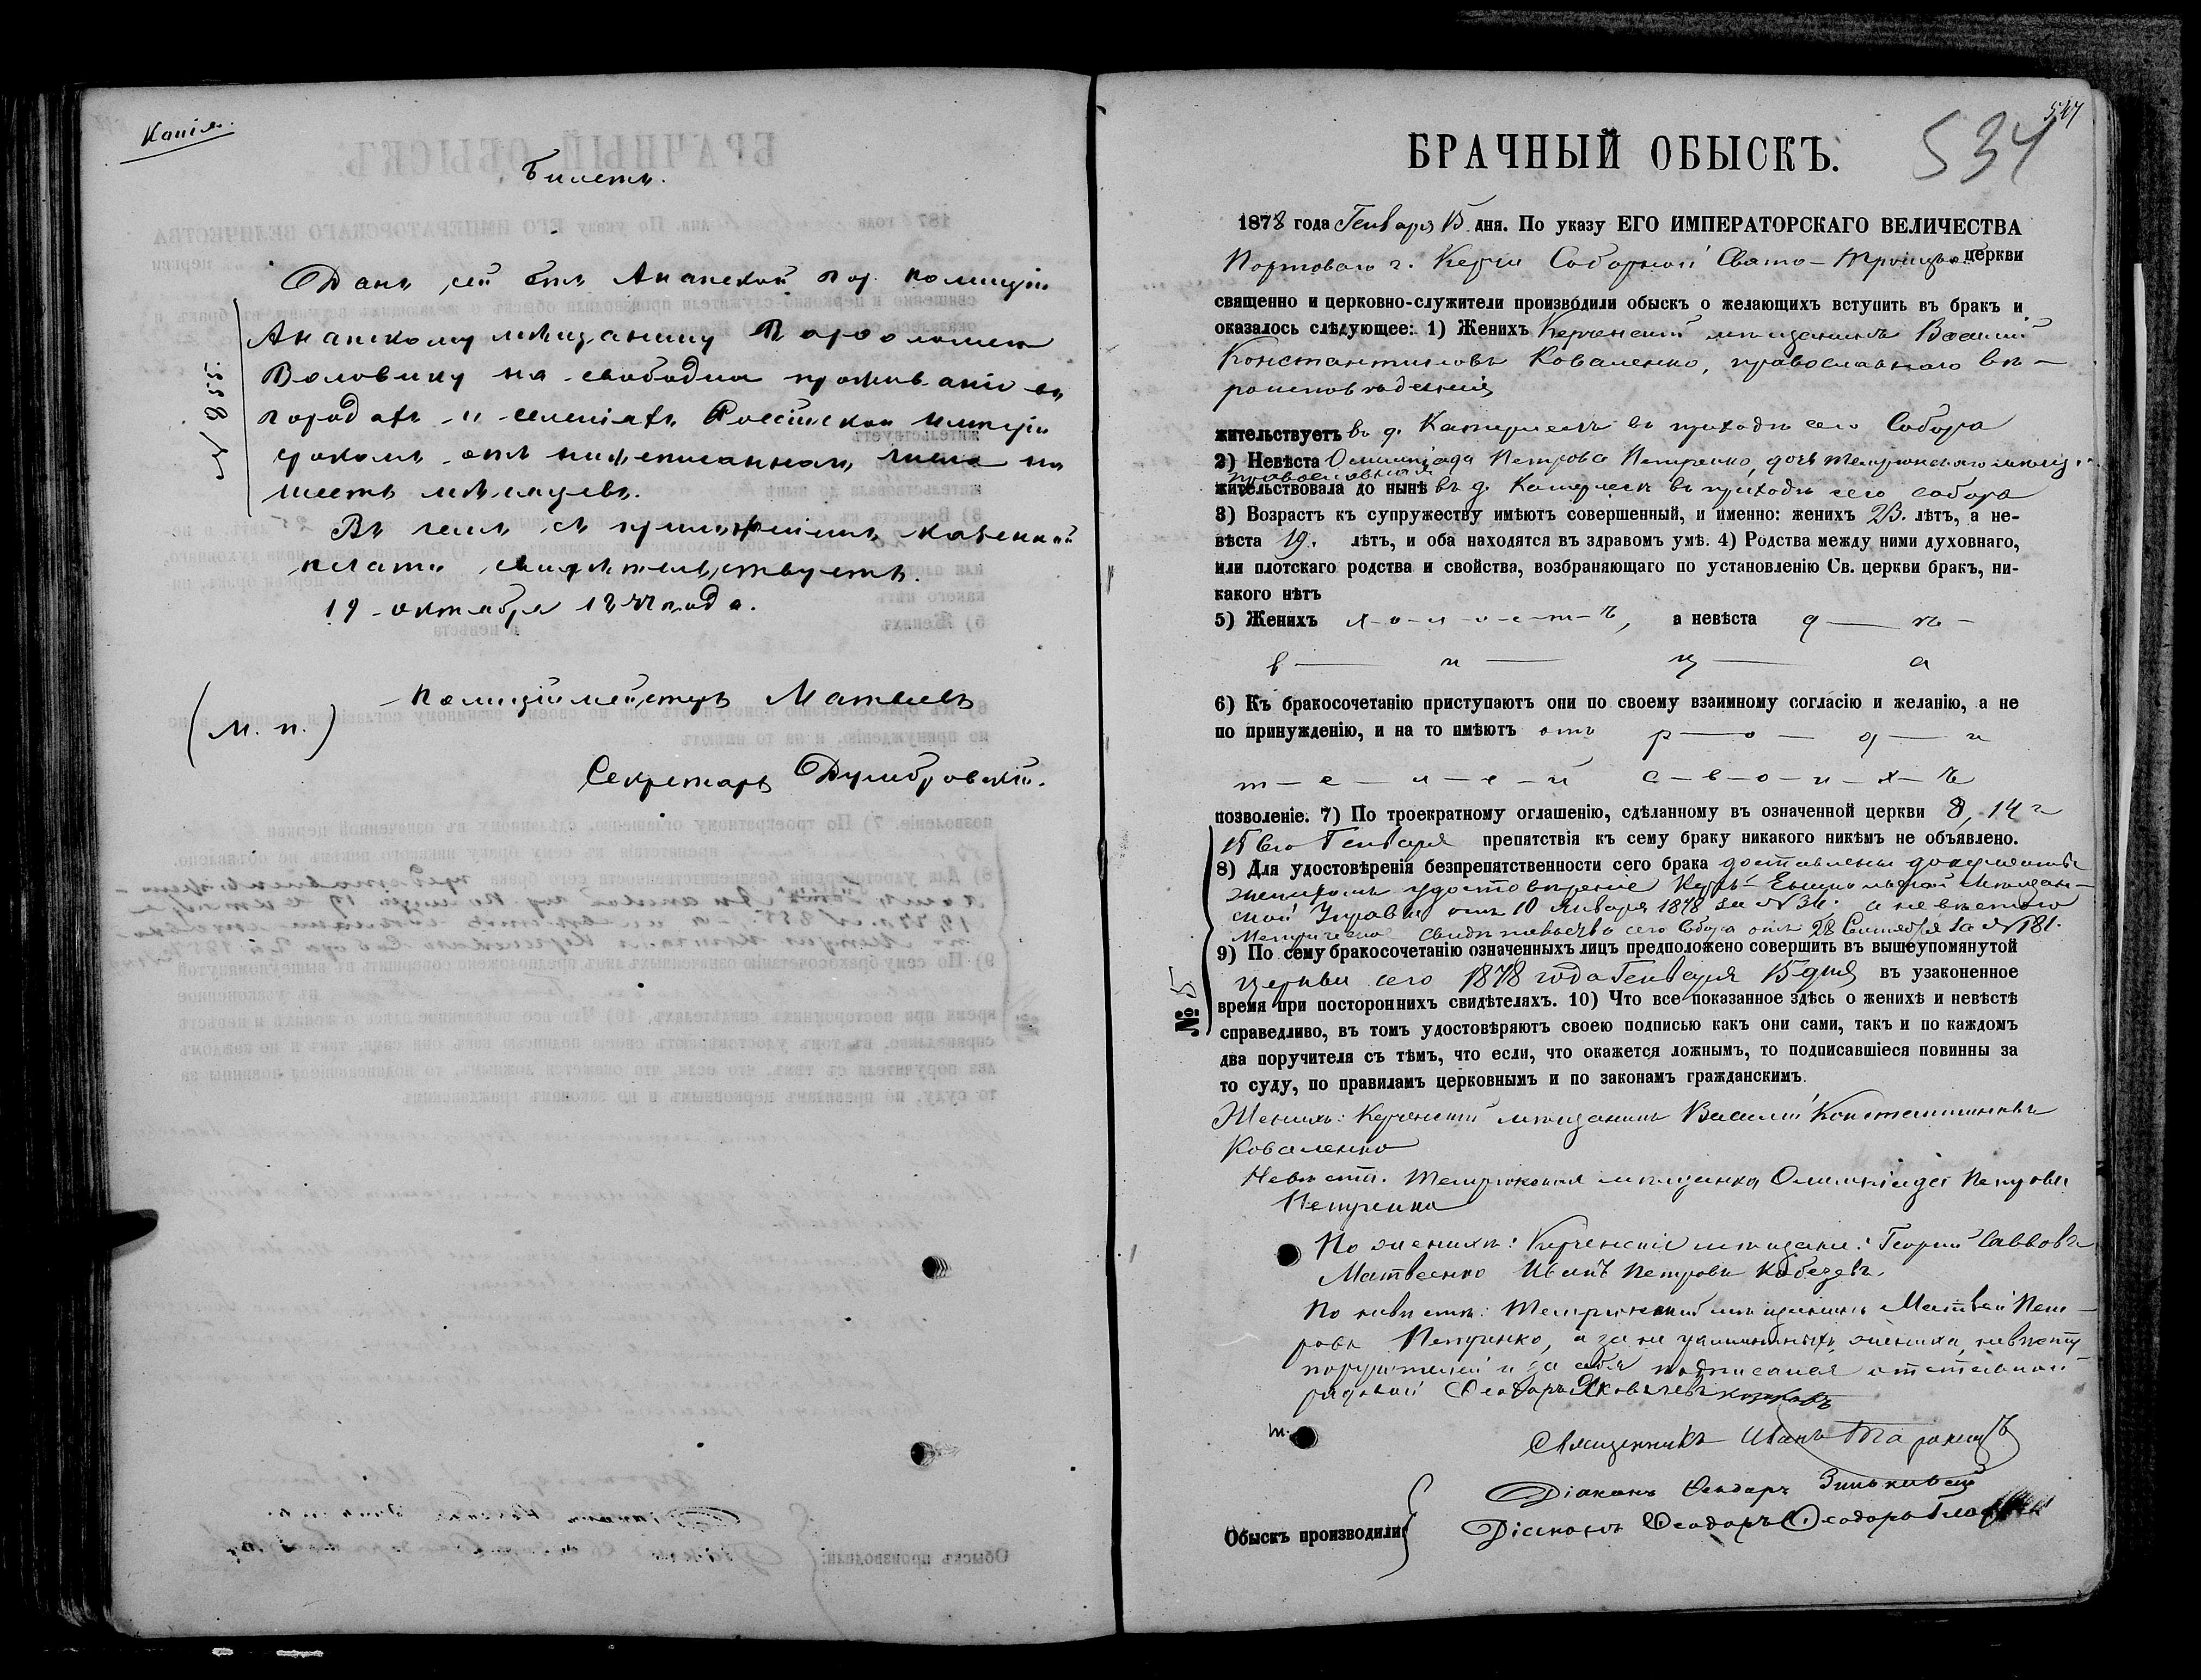 Копія.
Билетъ.
Данъ сей отъ Анапской гор. полиціи
Анапскому мѣщанину
Воловику на свободное проживаніе въ
городахъ и селеніяхъ Россійской Имперіи
срокомъ отъ нижеписаннаго числа на
шесть мѣсяцевъ.
Въ чемъ съ приложеніемъ казенной
печати свидѣтельствуетъ.
19 октября 1877 года.
№ 855.
Полиціймейстеръ Матвѣевъ
(М. п.)
Секретарь
547
534
БРАЧНЫЙ ОБЫСКЪ.
1878 года Генваря 15 дня. По указу ЕГО ИМПЕРАТОРСКАГО ВЕЛИЧЕСТВА
Портоваго г. Керчи Соборной Свято-Троицкой церкви
священно и церковно-служители производили обыскъ о желающихъ вступить въ бракъ и
оказалось слѣдующее: 1) Женихъ Керченский мѣщанинъ Василий
Константиновъ Коваленко, православнаго вѣ-
роисповѣданія
жительствуетъ въ д. Катерлезъ въ приходѣ сего Собора
2) Невѣста Олимпіада Петрова Петренко, дочь Темрюкскаго мѣщ.
православная
жительствовала до нынѣ въ д. Катерлезъ въ приходѣ сего собора
3) Возрастъ къ супружеству имѣютъ совершенный, и именно: женихъ 23. лѣтъ, а не-
вѣста 19. лѣтъ, и оба находятся въ здравомъ умѣ. 4) Родства между ними духовнаго,
или плотскаго родства и свойства, возбраняющаго по установленію Св. церкви бракъ, ни-
какого нѣтъ
5) Женихъ х-о-л-о-с-т-ъ, а невѣста д — ѣ —
в — и — ц — а
6) Къ бракосочетанію приступаютъ они по своему взаимному согласію и желанію, а не
по принужденію, и на то имѣютъ отъ р — о — д — и
т — е — л — е — й с — в — о — и — х — ъ
позволеніе. 7) По троекратному оглашенію, сдѣланному въ означенной церкви 8, 14 и
15 его Генваря препятствія къ сему браку никакого никѣмъ не объявлено.
8) Для удостовѣренія безпрепятственности сего брака доставлены документы
женихомъ удостовѣрение Керчь-Еникольской Мѣщан-
ской Управы отъ 10 Января 1878 за № 34. а невѣстою
Метрическое свидѣтельство сего Собора отъ 28 Сентября за № 181.
9) По сему бракосочетанію означенныхъ лицъ предположено совершить въ вышеупомянутой
церкви сего 1878 года Генваря 15 дня въ узаконенное
№ 5
время при постороннихъ свидѣтеляхъ. 10) Что все показанное здѣсь о женихѣ и невѣстѣ
справедливо, въ томъ удостовѣряютъ своею подписью какъ они сами, такъ и по каждомъ
два поручителя съ тѣмъ, что если, что окажется ложнымъ, то подписавшіеся повинны за
то суду, по правиламъ церковнымъ и по законамъ гражданскимъ.
Женихъ: Керченский мѣщанинъ Василий Константиновъ
Коваленко
Невѣста. Темрюкская мѣщанка Олимпіада Петрова
Петренко
По женихѣ: Керченские мѣщане: Георгий Савовъ
Матвеенко Иванъ Петровъ
По невѣстѣ: Темрюкский мѣщанинъ Матвей Пет-
ровъ Петренко, а за неграмотныхъ жениха, невѣсту
поручителей и за себя подписался отставной
рядовой Ѳеодоръ Яковлевъ
Священникъ Иванъ
Діаконъ Ѳеодоръ Зиньковский
Обыскъ производили: Діаконъ Ѳеодоръ